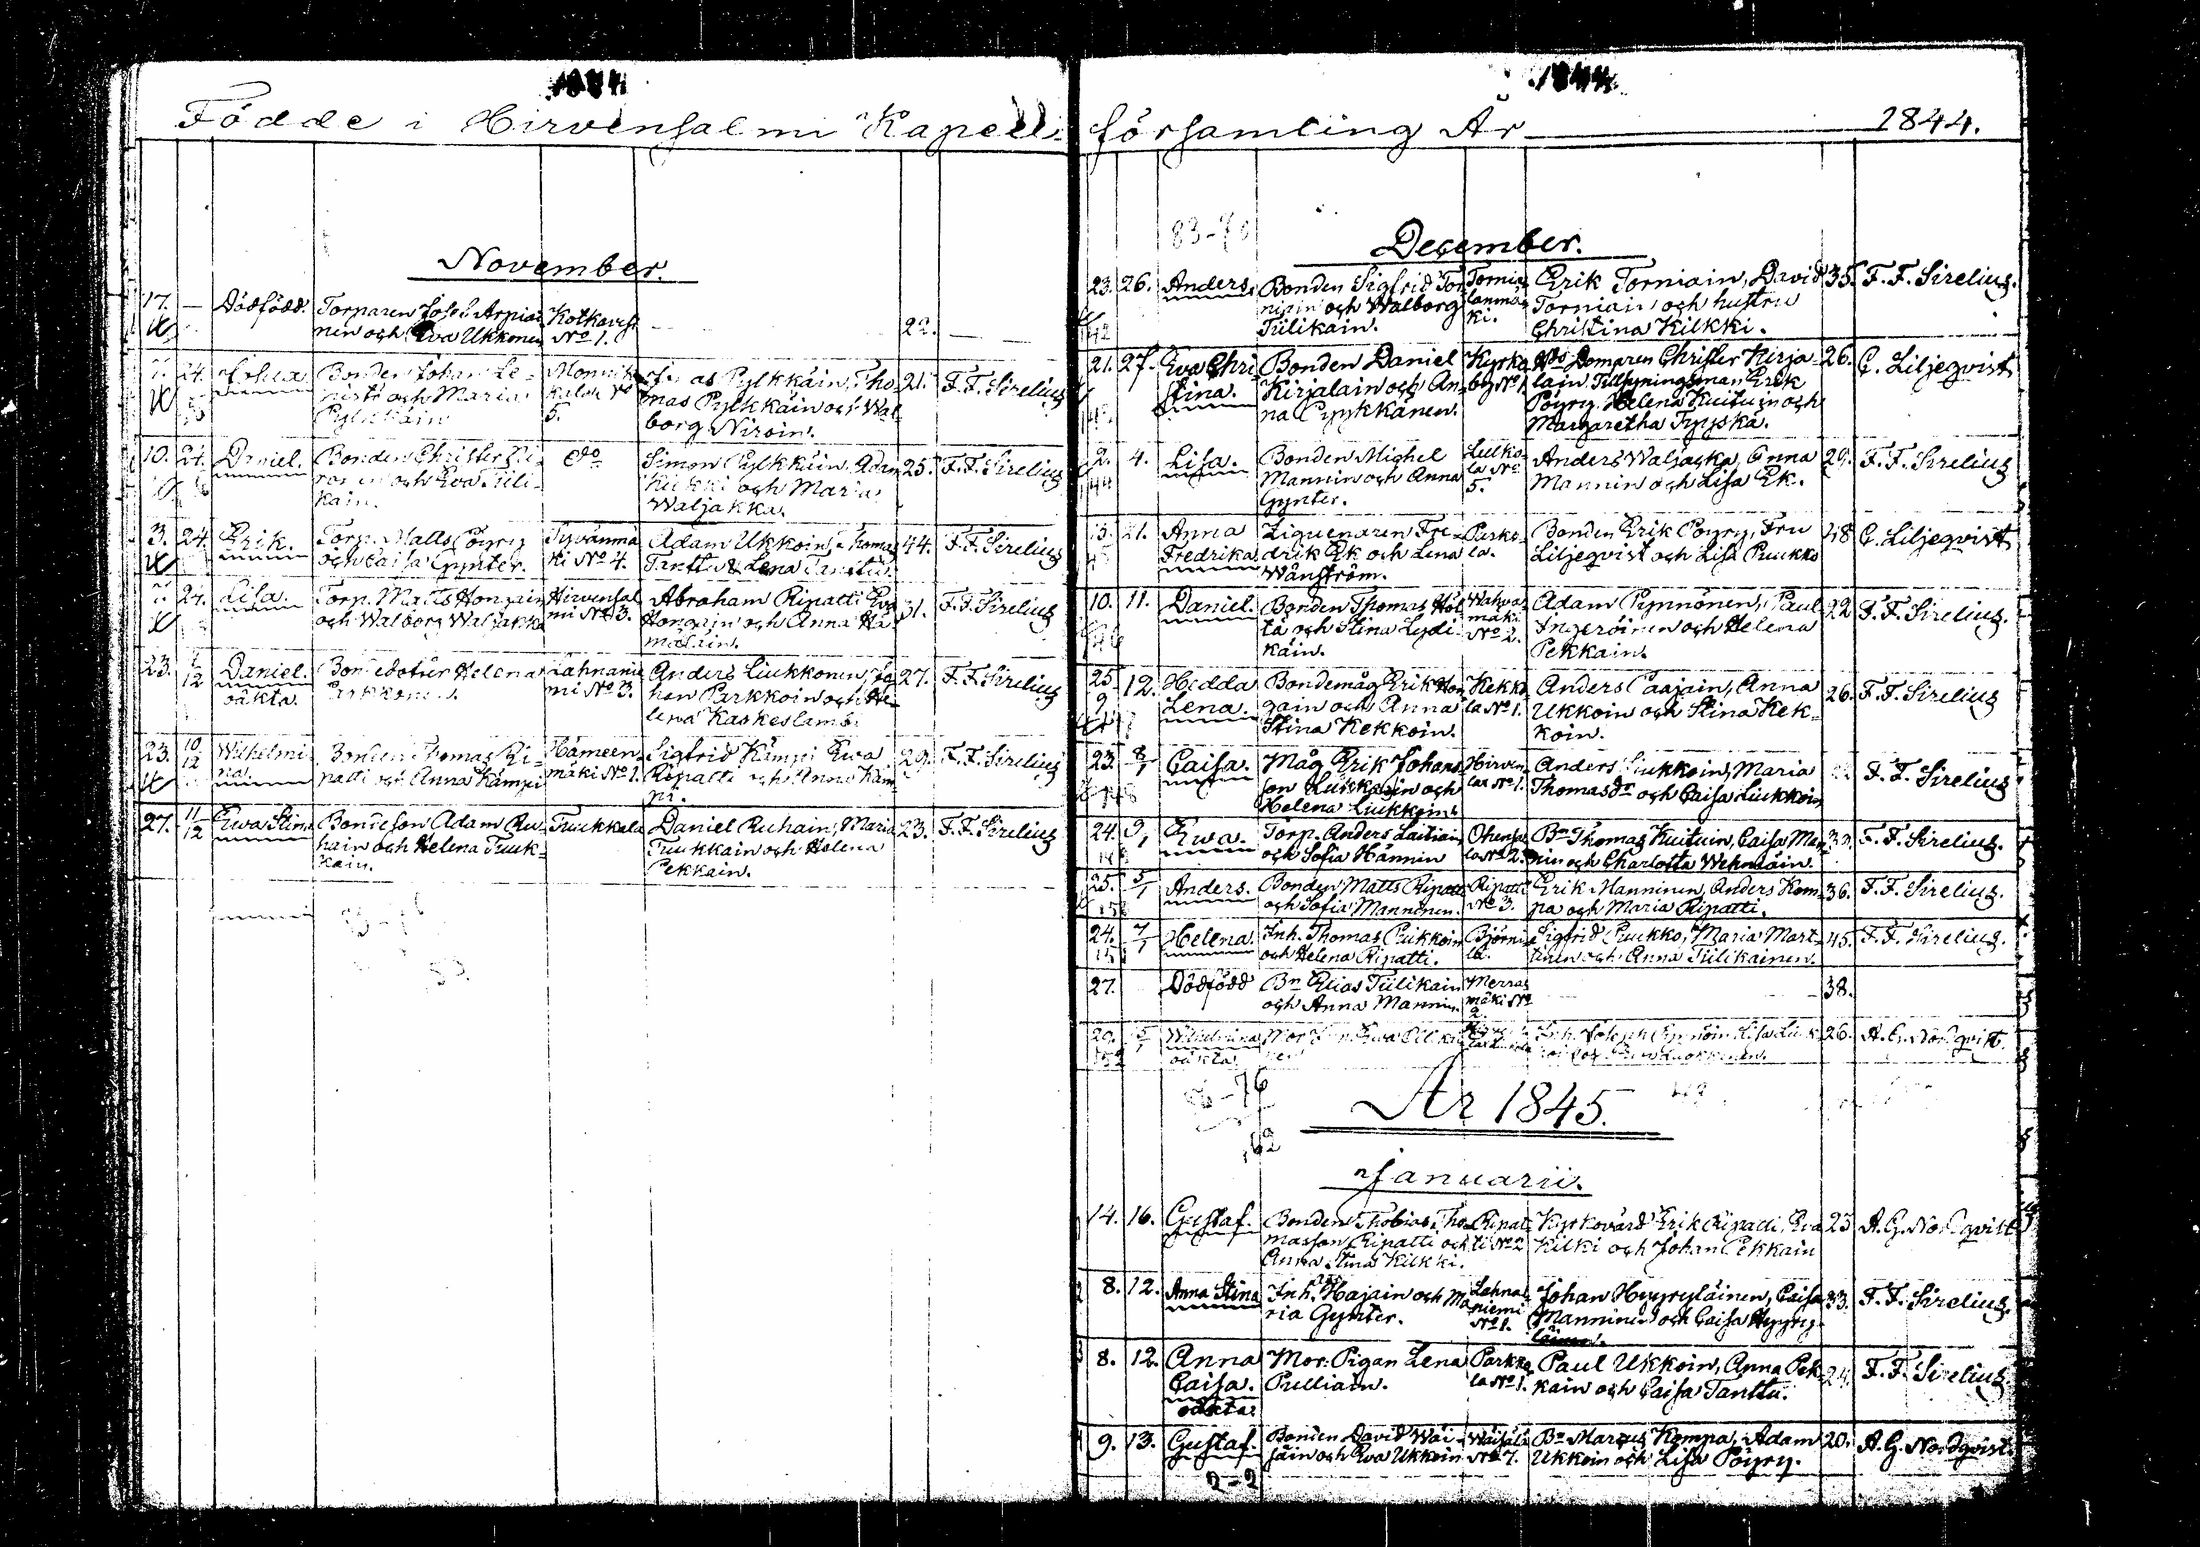 1844
Födde i Hirvensalmi Kapell-
November.
17. — Dödfödd. Torparen Josef Arpiai-
nen och Eva Ukkonen
Kotkavesi
No 1.
22. —
24. Johan Bonden Johan Le-
nisti och Maria
Pylkkäin
5.
Pylkkäin, Tho-
mas Pylkkäin och Wal-
borg Niroin.
21. F. F. Sirelius
10. 24. Daniel. Bonden Christer
och Eva Tiili-
kain.
do
Simon Pylkkäin, Adam
Kilkki och Maria
Waljakka.
25. F. F. Sirelius
3. 24. Erik. Torp. Matts Pöyry
och Caisa Gynter.
Syvänmä-
ki No 4.
Adam Ukkoin, Thomas
Tanttu & Lena Tanttu.
44. F. F. Sirelius
24. Lisa. Torp. Matts Hongain
och Walborg Waljakka
Hirvensal
mi No 3.
Abraham Ripatti Eva
Hongain och Anna Hä-
mäläin.
31. F. F. Sirelius
23. 1/12 Daniel.
oäkta.
Bondedotter Helena
Parkkonen.
Lahnanie
mi No 3.
Anders Liukkonen, Jo-
han Parkkoin och He-
lena Kaskeslambi
27. F. F. Sirelius
23. 10/12 Wilhelmi
na.
Bonden Thomas Ri-
patti och Anna Kämpi
Hämeen-
mäki No 1.
Sigfrid Kämpi Ewa
Ripatti och Anna Käm-
pi.
29. F. F. Sirelius
27. 11/12 Ewa Stina Bondeson Adam Ru-
hain och Helena Truuk-
kain.
Truukkala
Daniel Ruhain, Maria
Truukkain och Helena
Pekkain.
23. F. F. Sirelius
1844.
församling År 1844.
83-70
December.
23. 26. Anders. Bonden Sigfrid Tor
niain och Walborg
Tiilikain.
Tornia
lanmä-
ki.
Erik Torniain, David
Torniain och hustru
Christina Kilkki.
35. F. F. Sirelius.
21. 27. Eva Chri-
stina.
Bonden Daniel
Kirjalain och An-
na Pyykkänen.
Kyrko
by No 1.
Domaren Christer Kirja-
lain Tillsyningsman Erik
Pöyry Helena Kuituin och
Margaretha Tryyska.
26. C. Liljeqvist
2. 4. Lisa. Bonden Michel
Mannin och Anna
Gynter.
Lulko-
la No
5.
Anders Waljacka, Anna
Mannin och Lisa Ek.
29. F. F. Sirelius
13. 21. Anna
Fredrika
Ziguenaren Fre-
drik Ek och Lena
Wänström.
Parko-
la.
Bonden Erik Pöyry, Fru
Liljeqvist och Lisa Puukko
48 C. Liljeqvist
10. 11. Daniel. Bonden Thomas Höl
tä och Stina Lydi-
käin.
Wahva-
mäki
No 2.
Adam Pynnönen, Paul
Ingeröinen och Helena
Pekkain.
22 F. F. Sirelius.
25
9
12. Hedda
Lena.
Bondemåg Erik Hon
gain och Anna
Stina Kekkoin.
Kekko
la No 1.
Anders Paajain, Anna
Ukkoin och Stina Kek-
koin.
26. F. F. Sirelius
23 8/1 Caisa. Måg Erik Johans-
son Liukkoin och
Helena Liukkoin.
Hirven
lax No 1.
Anders Liukkoin, Maria
Thomasdr och Caisa Liukkoin
F. F. Sirelius
24. 9/1 Ewa. Torp. Anders Laitiain
och Sofia Hännin
Ohensa
lo No 2.
Bn Thomas Kuituin, Caisa Man
nin och Charlotta Wehmain.
F. F. Sirelius.
25. 5/1 Anders. Bonden Matts Ripatti
och Sofia Manninen.
Ripatti
No 3.
Erik Manninen, Anders Kom-
pa och Maria Ripatti.
36. F. F. Sirelius.
24. 7/1 Helena. Inh. Thomas Pukkoin
och Helena Ripatti.
Björni-
la.
Sigfrid Puukko, Maria Mart-
tinen och Anna Tiilikainen.
45. F. F. Sirelius.
27. Dödfödd Bn Elias Tiilikain
och Anna Mannin.
Merras
mäki No
2.
38.
29. 5/1 Wilhelmina
oäkta
Mor
Inh. Joseph
26. A. G. Nordqvist.
76
62
År 1845.
Januarii.
14. 16. Gustaf. Bonden Thobias Tho-
masson Ripatti och
Anna Stina Kilkki.
Ripat-
ti No 2
Kyrkovärd Erik Ripatti, Eva
Kilki och Johan Pekkain
23 A. G. Nordqvist
8. 12. Anna Stina Inh. Hajain och Ma
ria Gynter.
Lahna-
niemi
No 1.
Johan Hyyryläinen, Caisa
Manninen och Caisa Hyyry-
läinen.
33. F. F. Sirelius.
8. 12. Anna
Caisa.
oäkta.
Mor: Pigan Lena
Pulliain.
Parkka
la No 1.
Paul Ukkoin, Anna Pek-
kain och Caisa Tanttu.
24. F. F. Sirelius.
9. 13. Gustaf. Bonden David Wäi-
säin och Eva Ukkoin
Wäisälä
No 7.
Bn Marcus Kompa, Adam
Ukkoin och Lisa Pöyry.
20. A. G. Nordqvist.
2-2